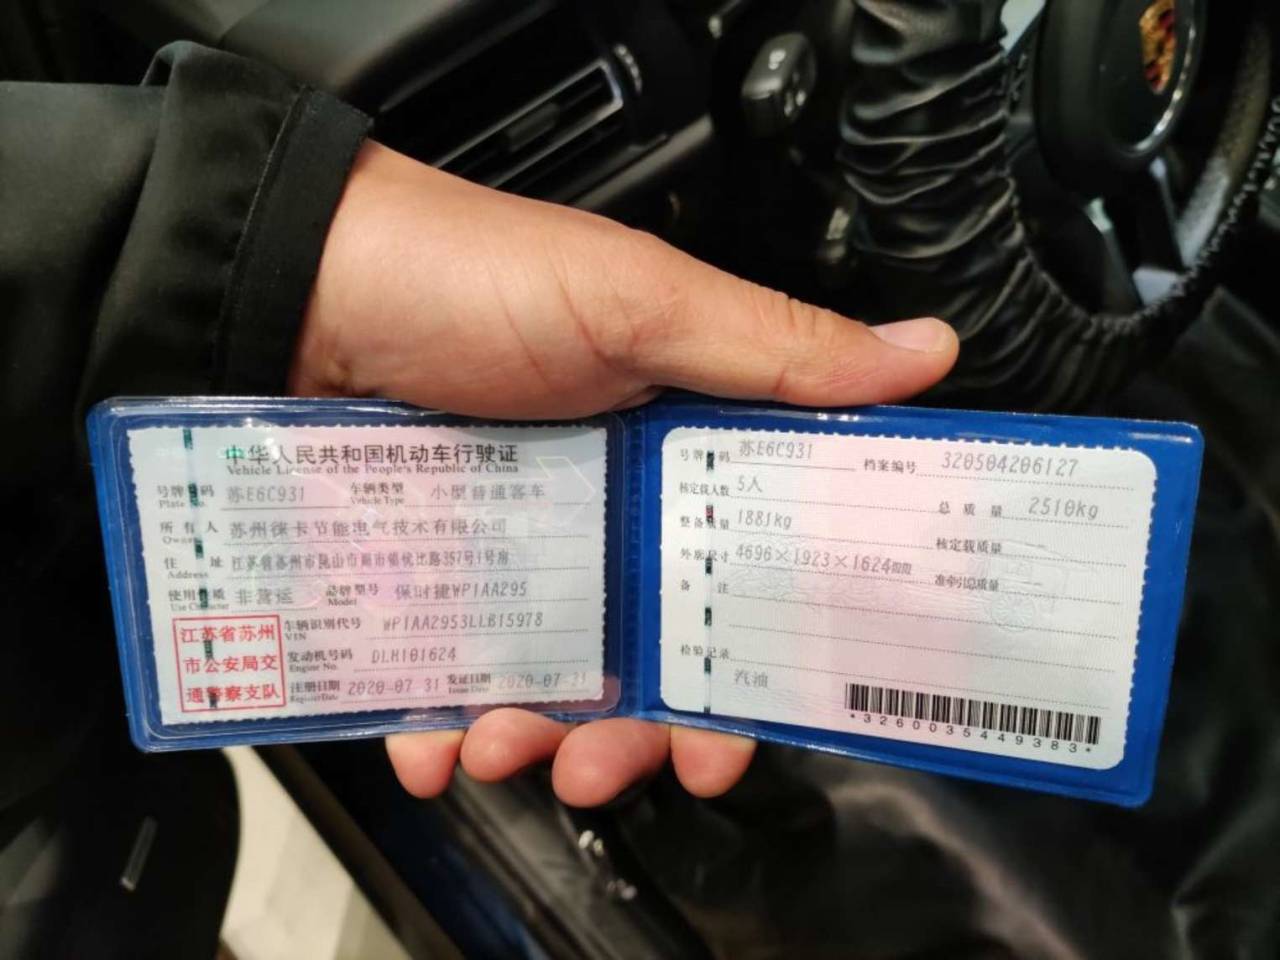 中华人民共和国机动车行驶证
Vehicle License of the People's Republic of China
号牌号码 苏E6C931 车辆类型 小型普通客车
Plate No. Vehicle Type
所有人 苏州徕卡节能电气技术有限公司
Owner
住址 江苏省苏州市昆山市周市镇优比路357号1号房
Address
使用性质 非营运 品牌型号 保时捷WP1AA295
Use Character Model
江苏省苏州
市公安局交
通警察支队
车辆识别代号 WP1AA2953LLB15978
VIN
发动机号码 DLH101624
Engine No.
注册日期 2020-07-31 发证日期 2020-07-31
Register Date Issue Date
号牌号码 苏E6C931 档案编号 320504206127
核定载人数 5人 总质量 2510kg
整备质量 1881kg 核定载质量 --
外廓尺寸 4696×1923×1624mm 准牵引总质量 --
备注
检验记录
汽油
*3260035449383*